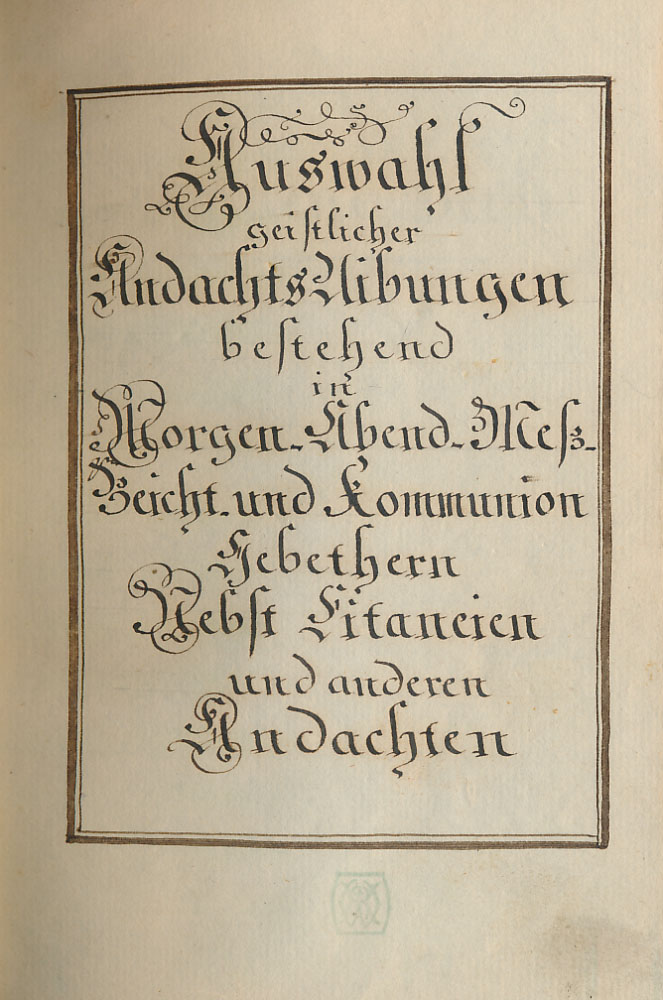 Auswahl
geistlicher
AndachtsUibungen
bestehend
in
Morgen-Abend-Meß-
Beicht-und Kommunion
Gebethern
Nebst Litaneien
und anderen
Andachten